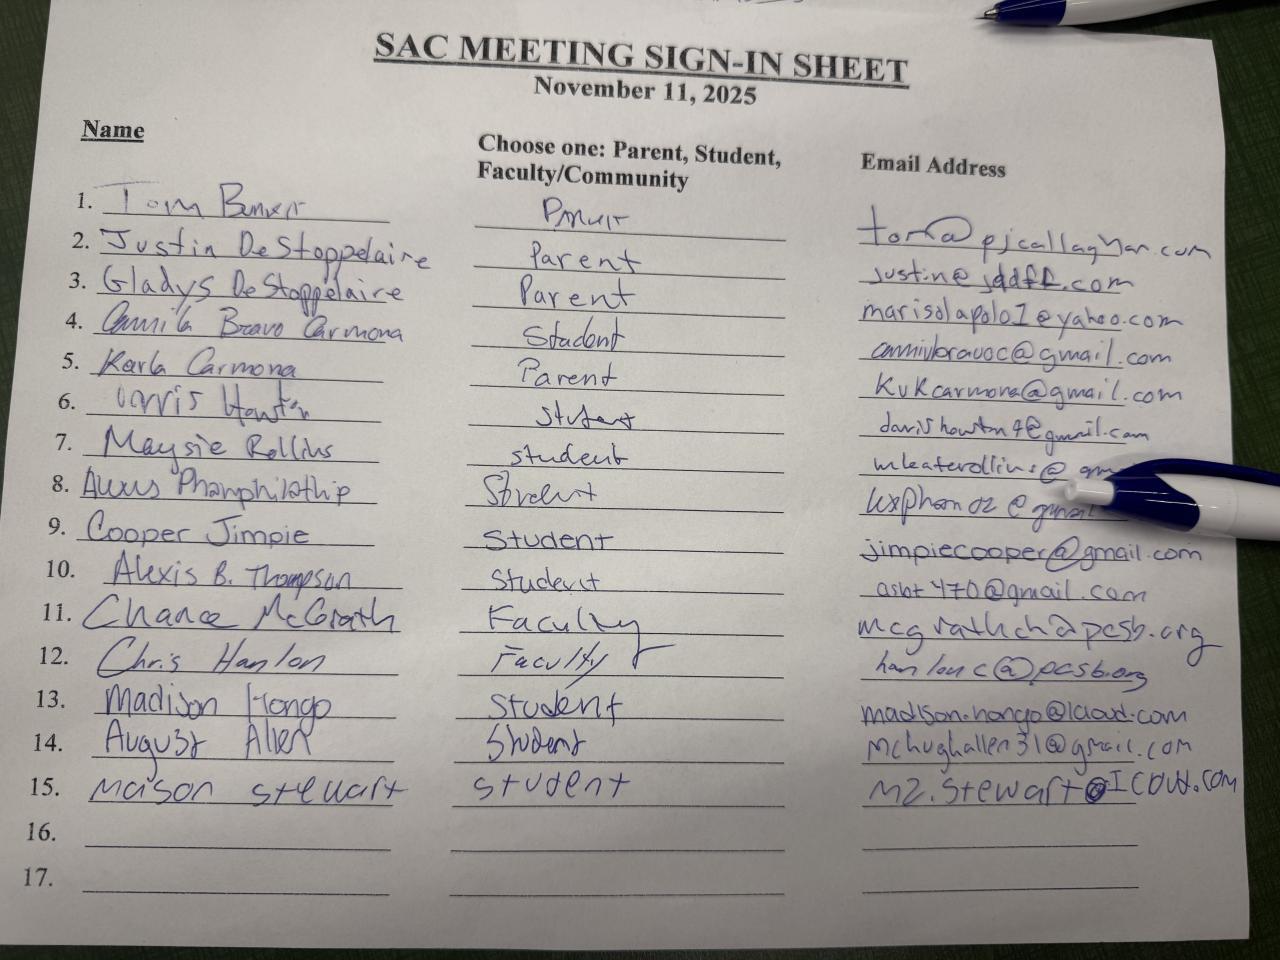 SAC MEETING SIGN-IN SHEET
November 11, 2025
Name Choose one: Parent, Student, Faculty/Community Email Address
1. Tom Parent tom@pjcallaghan.com
2. Justin DeStoppelaire Parent justin@jddff.com
3. Gladys DeStoppelaire Parent marisolapolo1@yahoo.com
4. Camila Bravo Carmona Student camivbravoc@gmail.com
5. Karla Carmona Parent kvkcarmona@gmail.com
6. Student
7. Maysie Rollins student
8. Alexus Phamphilathip Student
9. Cooper Jimpie Student jimpiecooper@gmail.com
10. Alexis B. Thompson Student asbt470@gmail.com
11. Chance McGrath Faculty mcgrathch@pcsb.org
12. Chris Hanlon Faculty hanlonc@pcsb.org
13. Madison Hongo Student madison.hongo@icloud.com
14. August Allen Student mchughallen31@gmail.com
15. maison stewart student mz.stewart@Icoud.com
16.
17.